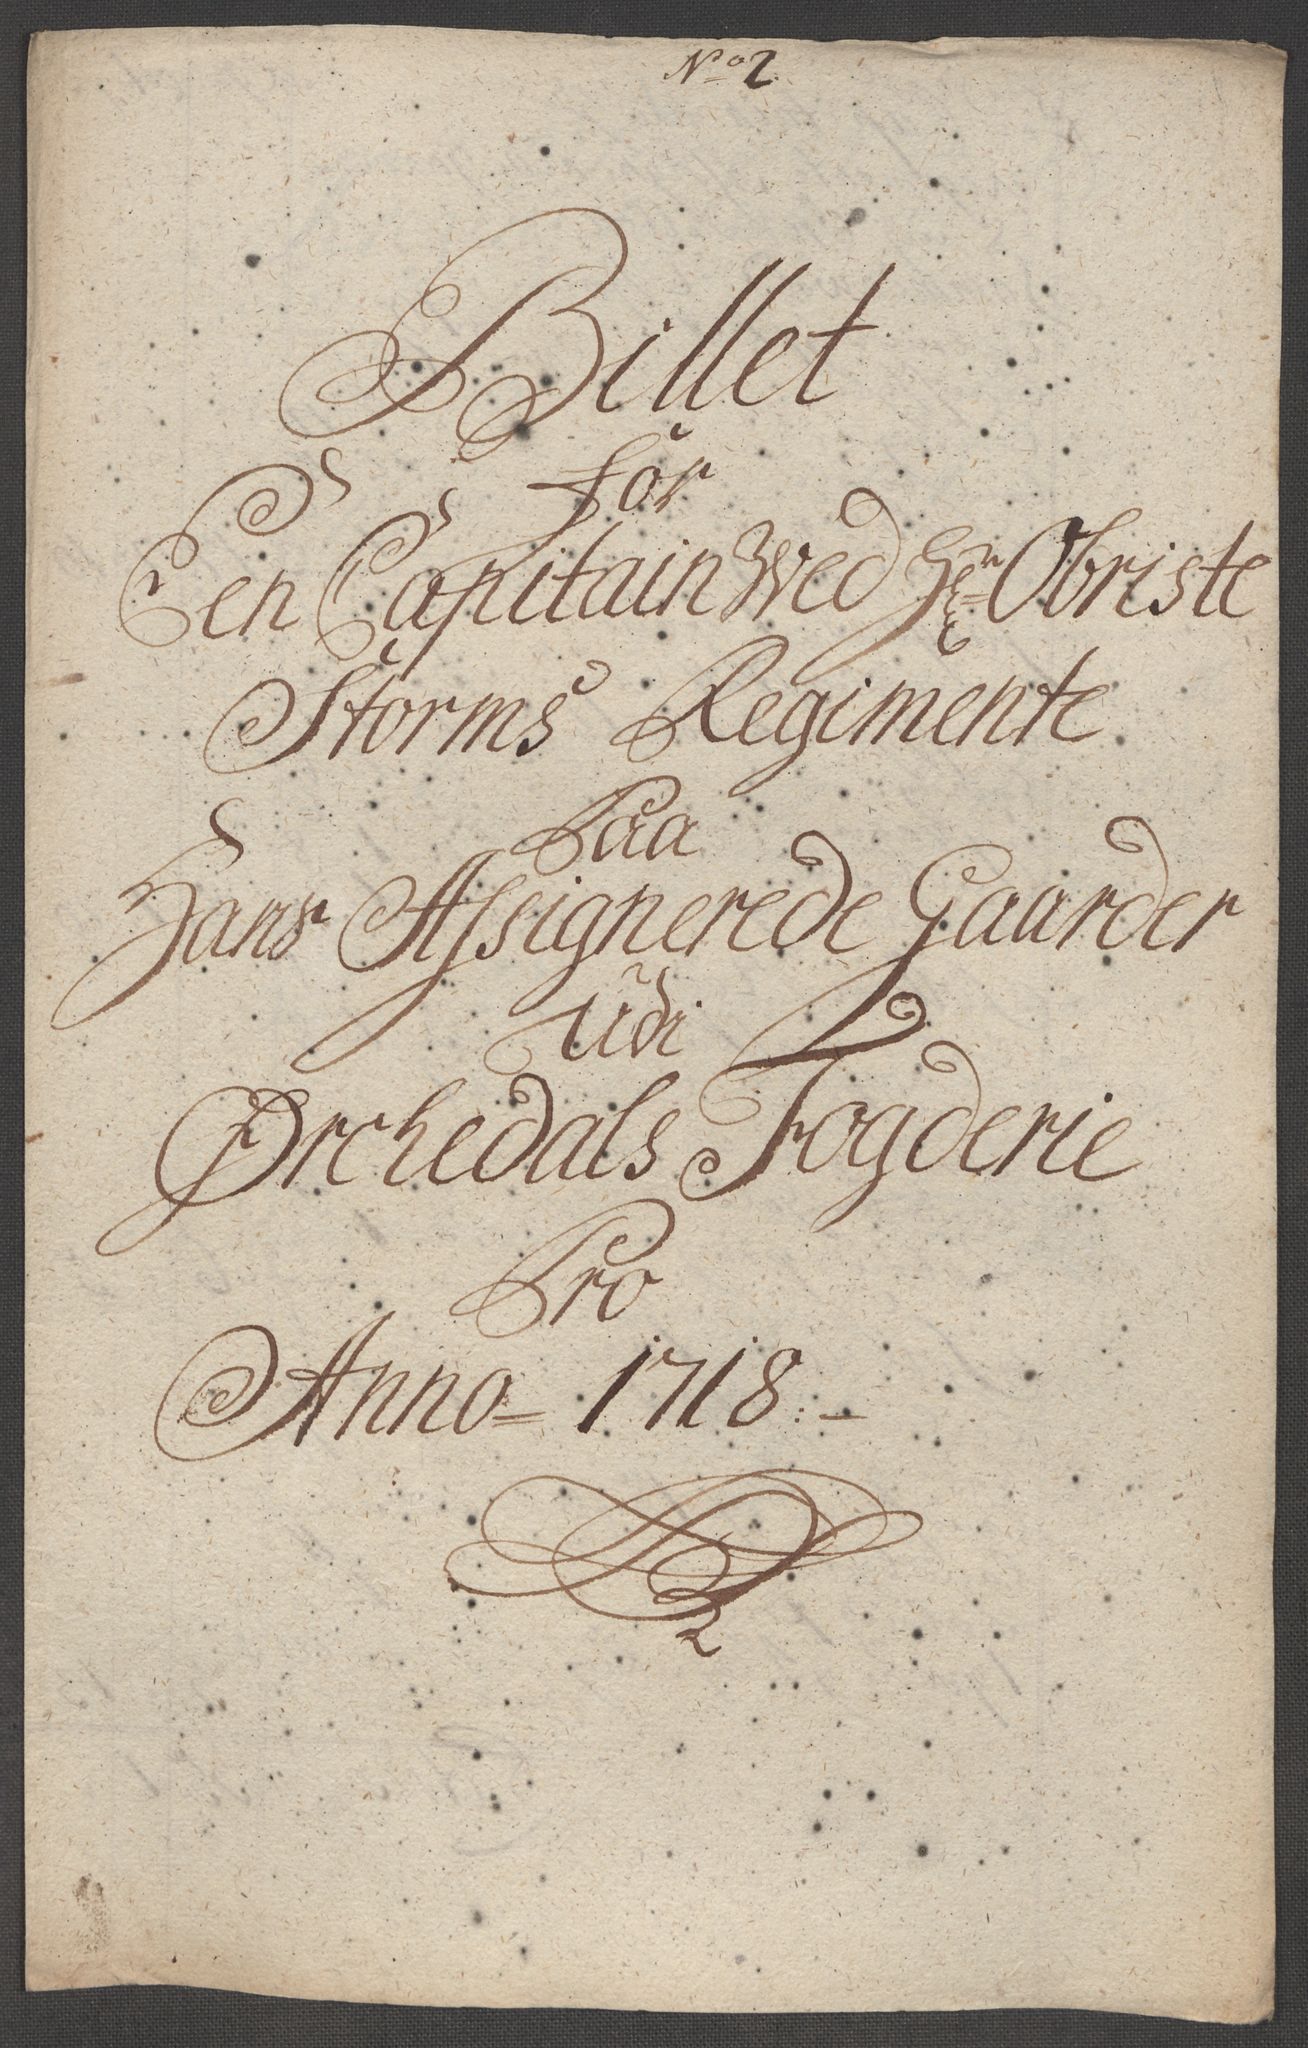 No 2
Billet
for
Een Capitain Wed Hr: Obriste
Storms Regimente
Paa
Hans Assignerede Gaarder
Udi
Ørchedals Fogderie
Pro
Anno = 1718 : –